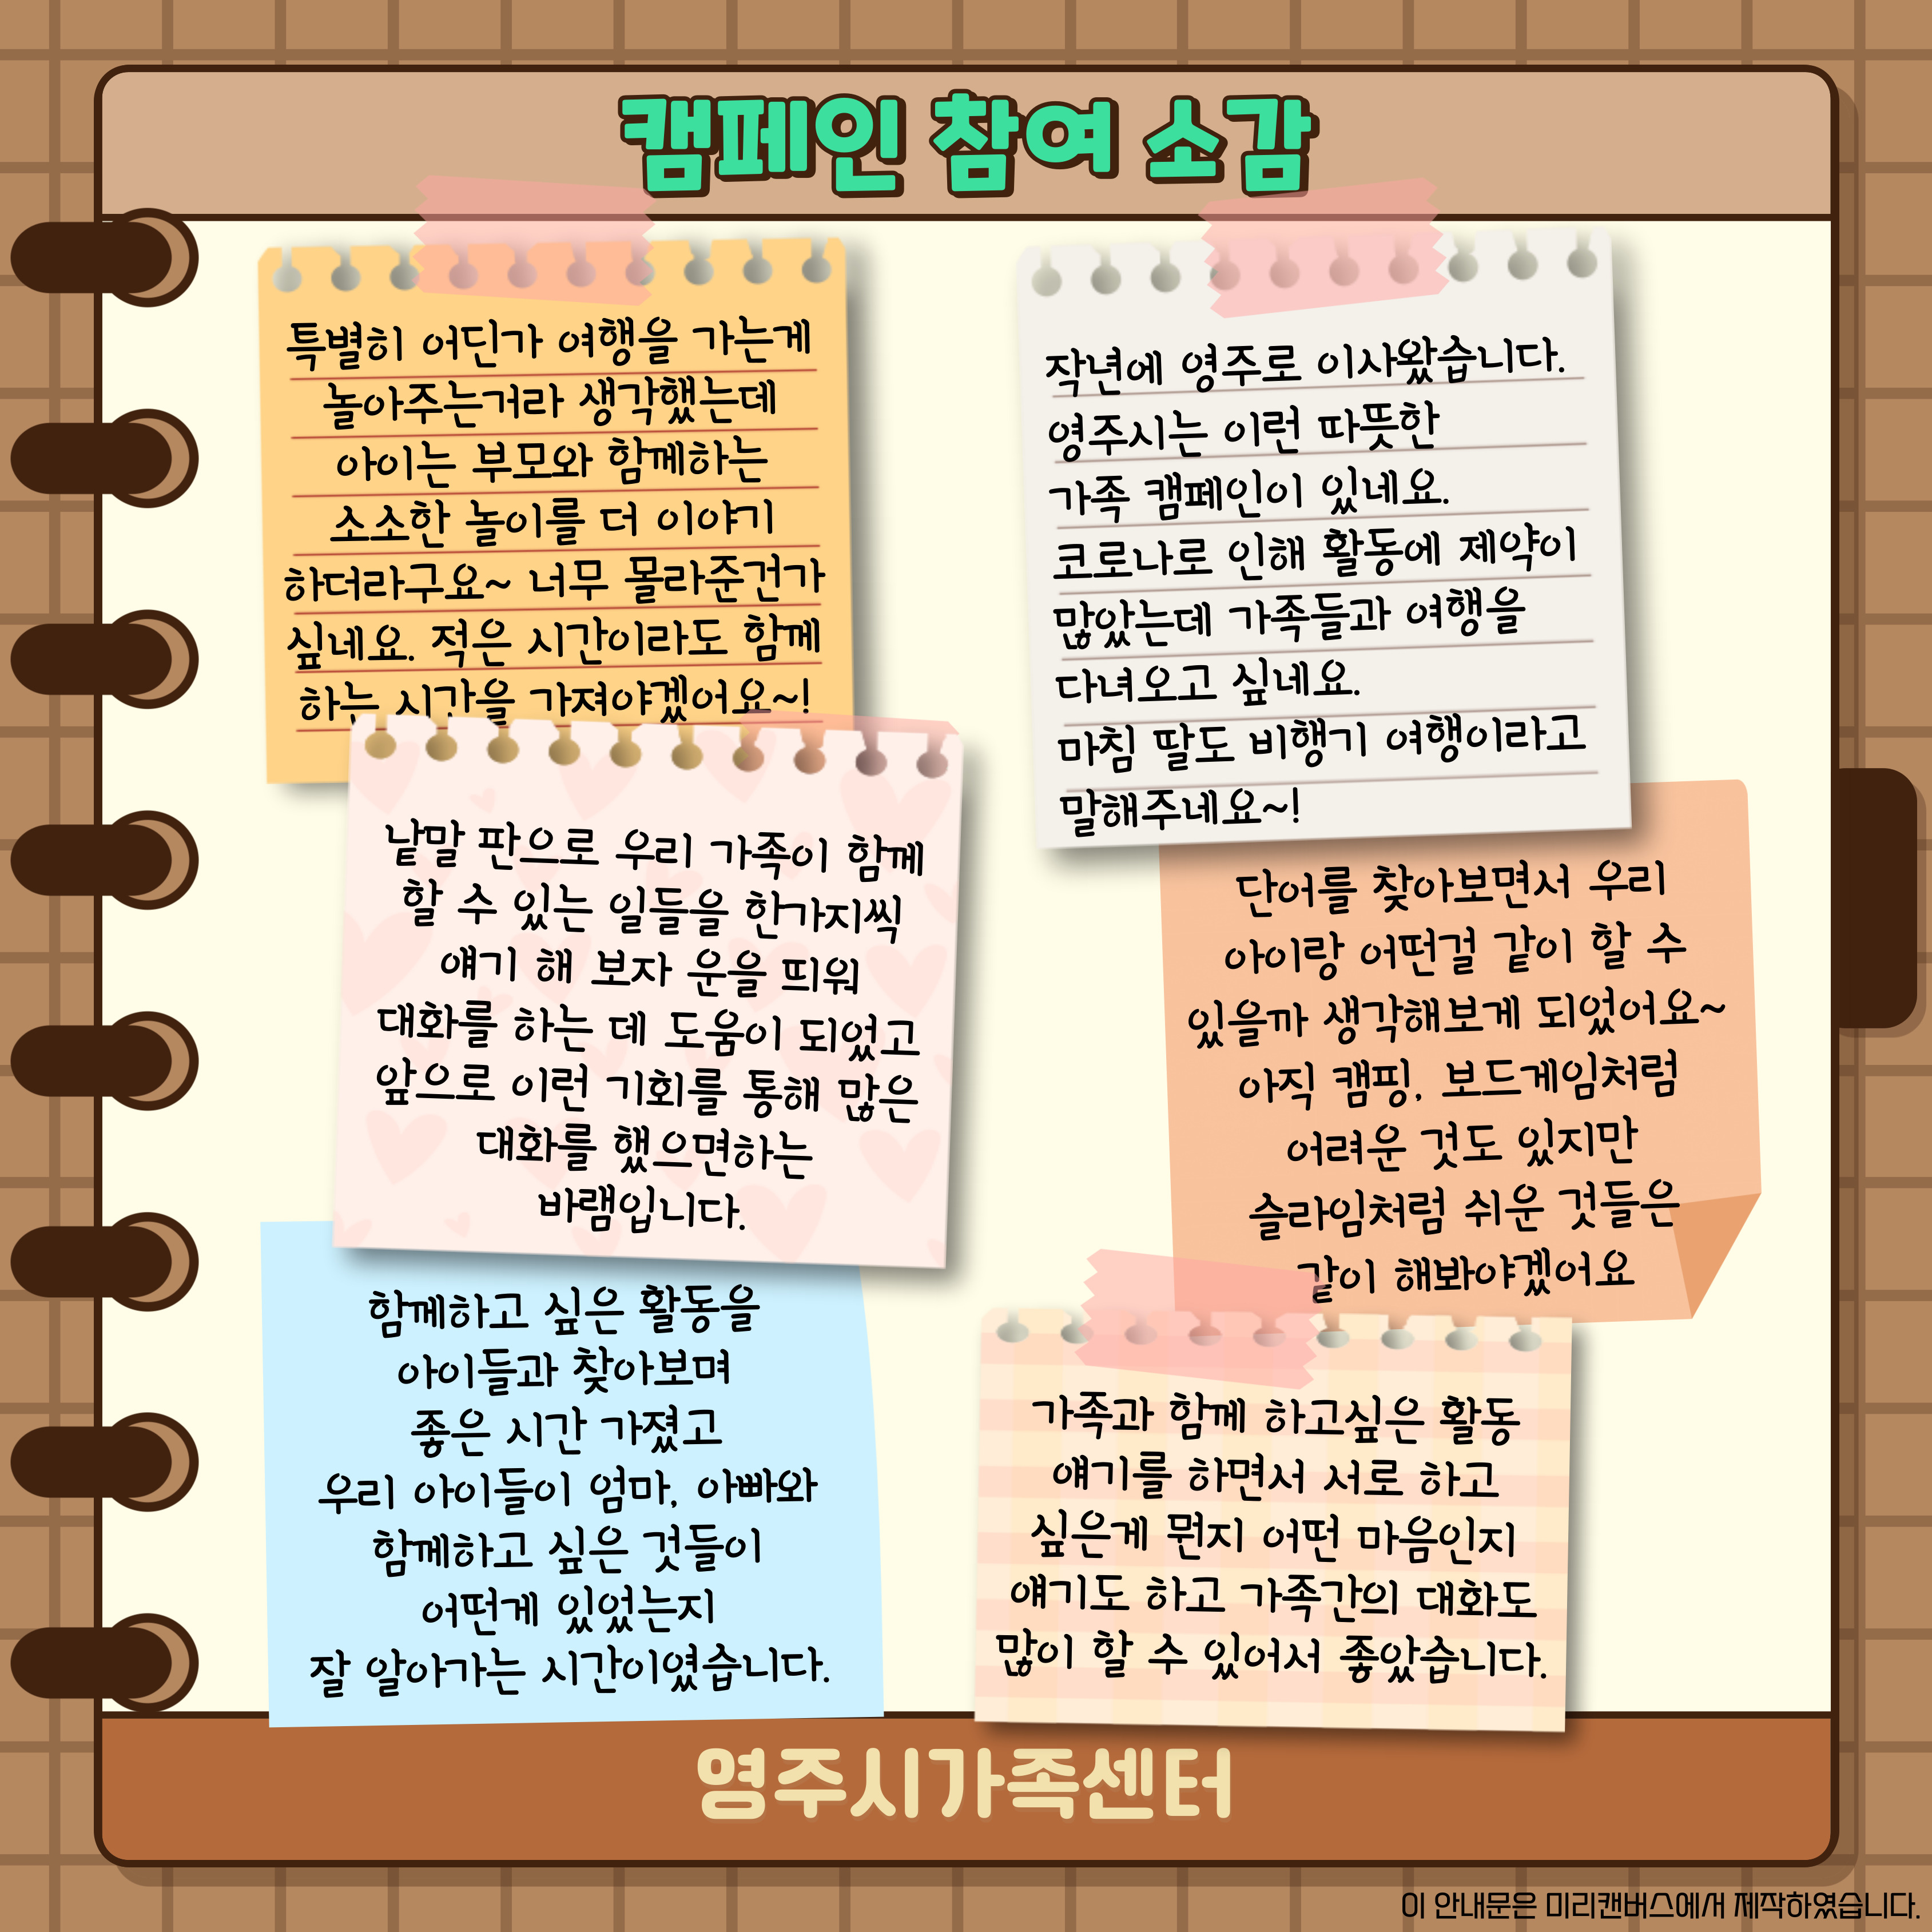 캠페인 참여 소감
특별히 어딘가 여행을 가는게
놀아주는거라 생각했는데
아이는 부모와 함께하는
소소한 놀이를 더 이야기
하더라구요~ 너무 몰라준건가
싶네요. 적은 시간이라도 함께
하는 시간을 가져야겠어요~!
작년에 영주로 이사왔습니다.
영주시는 이런 따뜻한
가족 캠페인이 있네요.
코로나로 인해 활동에 제약이
많았는데 가족들과 여행을
다녀오고 싶네요.
마침 딸도 비행기 여행이라고
말해주네요~!
낱말 판으로 우리 가족이 함께
할 수 있는 일들을 한가지씩
얘기 해 보자 운을 띄워
대화를 하는 데 도움이 되었고
앞으로 이런 기회를 통해 많은
대화를 했으면하는
바램입니다.
단어를 찾아보면서 우리
아이랑 어떤걸 같이 할 수
있을까 생각해보게 되었어요~
아직 캠핑, 보드게임처럼
어려운 것도 있지만
슬라임처럼 쉬운 것들은
같이 해봐야겠어요
함께하고 싶은 활동을
아이들과 찾아보며
좋은 시간 가졌고
우리 아이들이 엄마, 아빠와
함께하고 싶은 것들이
어떤게 있었는지
잘 알아가는 시간이였습니다.
가족과 함께 하고싶은 활동
얘기를 하면서 서로 하고
싶은게 뭔지 어떤 마음인지
얘기도 하고 가족간의 대화도
많이 할 수 있어서 좋았습니다.
영주시가족센터
이 안내문은 미리캔버스에서 제작하였습니다.